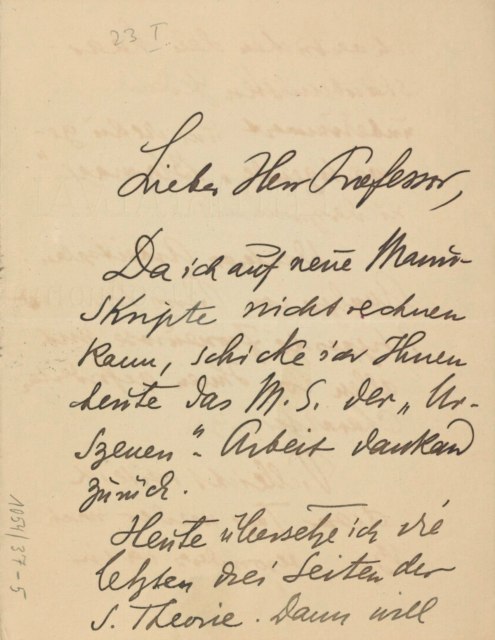 23 I
Lieber Herr Professor,
Da ich auf neue Manu-
skripte nicht rechnen
kann, schicke ich Ihnen
heute das M. S. der „Ur-
szenen“-Arbeit dankend
zurück.
Heute übersetze ich die
letzten drei Seiten der
S. Theorie. Dann will
1054/37-5